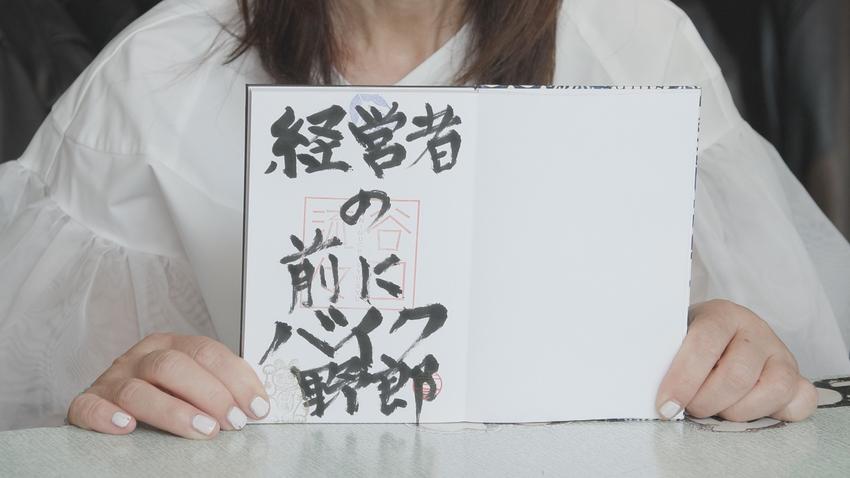 経営者
の
前に
バイク
野郎